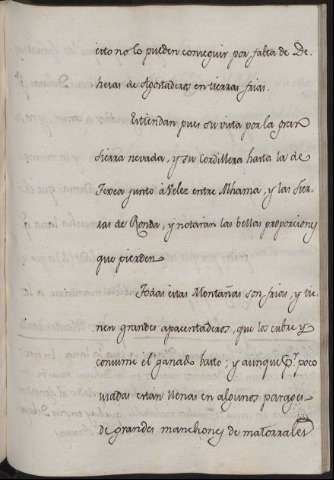 esto no lo pueden conseguir por falta de De-
heras de Agostaderos en tierras frias.
Estiendan pues su vista por la gran
sierra nevada, y su cordillera hasta la de
Texea junto à Velez entre Alhama, y las sier-
ras de Ronda, y notaran las bellas proporciones
que pierden
Todas estas Montañas son frias, y tie-
nen grandes apacentaderos, que los cubre y
consume el ganado basto; y aunque p.r poco
cuidadas estan llenas en algunos parages
de grandes manchones de matorrales